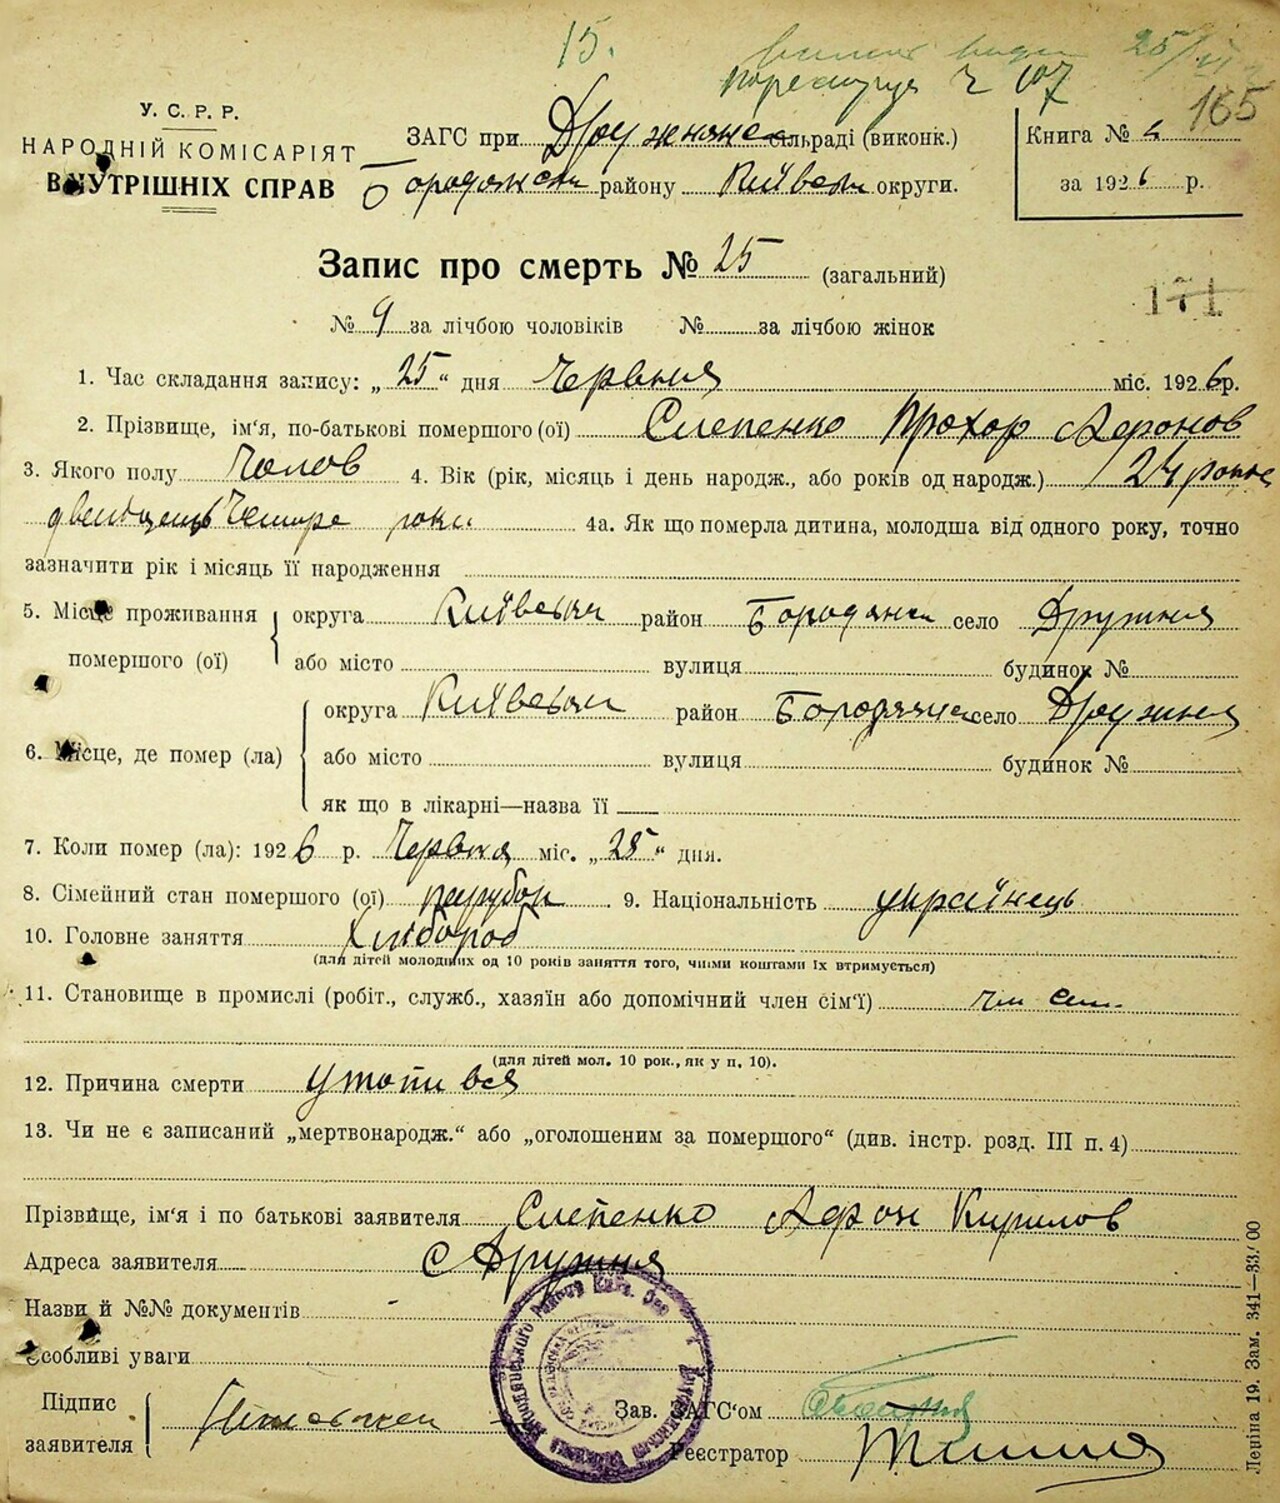 15. 25/VI
ч 107
165
У. С. Р. Р.
НАРОДНІЙ КОМІСАРІЯТ
ВНУТРІШНІХ СПРАВ
ЗАГС при Дружнянс сільраді (виконк.)
Бородянськ району Київськ округи.
Книга №
за 1926 р.
Запис про смерть № 25 (загальний)
171
№ 9 за лічбою чоловіків № за лічбою жінок
1. Час складання запису: „25“ дня Червня міс. 1926 р.
2. Прізвище, ім'я, по-батькові помершого (ої) Слепенко Прохор Афонов
3. Якого полу Чолов 4. Вік (рік, місяць і день народж., або років од народж.) 24 роки
двадцать Чотире роки 4а. Як що померла дитина, молодша від одного року, точно
зазначити рік і місяць її народження
5. Місце проживання помершого (ої) округа Київськи район Бородянськ село Дружня
або місто вулиця будинок №
6. Місце, де помер (ла) округа Київськи район Бородянськ село Дружня
або місто вулиця будинок №
як що в лікарні—назва її
7. Коли помер (ла): 1926 р. Червня міс. „25“ дня.
8. Сімейний стан помершого (ої) парубок 9. Національність українець
10. Головне заняття Хлібороб
(для дітей молодших од 10 років заняття того, чиїми коштами їх втримується)
11. Становище в промислі (робіт., служб., хазяїн або допомічний член сім'ї) чл сем.
(для дітей мол. 10 рок., як у п. 10).
12. Причина смерти утопився
13. Чи не є записаний „мертвонародж.“ або „оголошеним за помершого“ (див. інстр. розд. III п. 4)
Прізвище, ім'я і по батькові заявителя Слепенко Афон Кирилов
Адреса заявителя с Дружня
Назви й №№ документів -
Особливі уваги
Підпис заявителя
Зав. ЗАГС'ом
Реєстратор
Леріна 19. Зам. 341—33/00